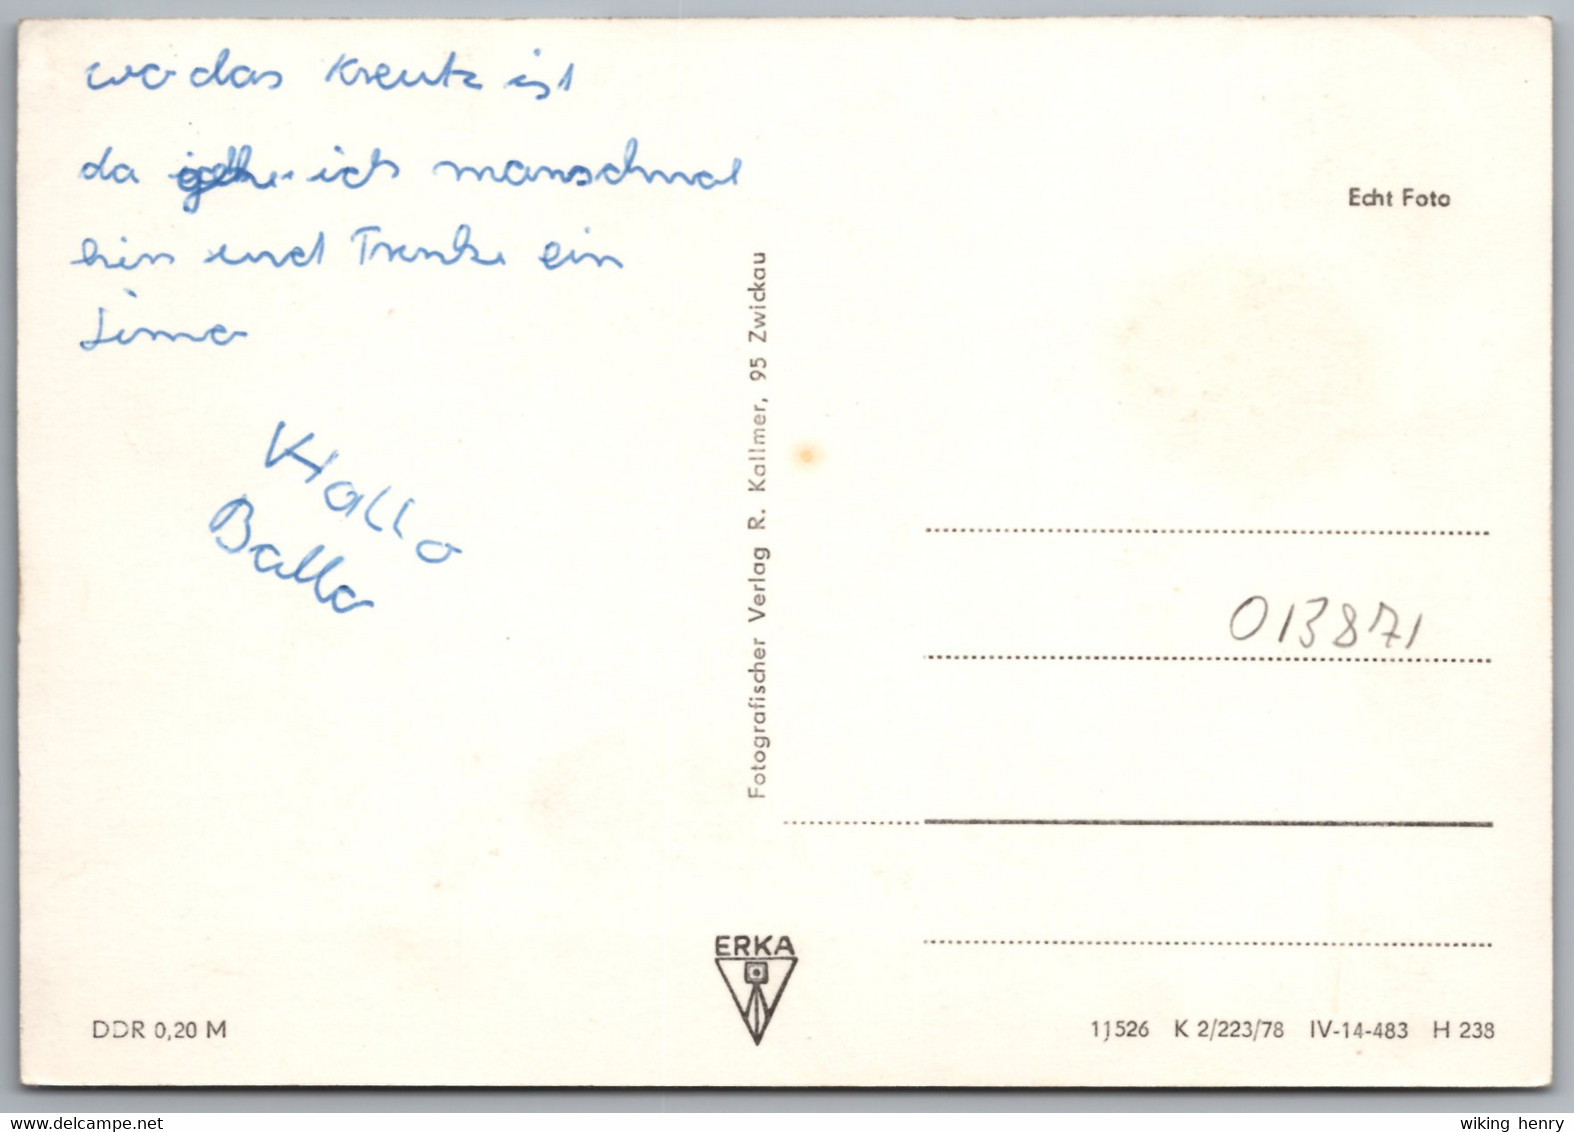 wo das Kreutz ist
da gehe ich manschmal
hin und Trinke ein
Limo
Hallo
Ballo
Echt Foto
Fotografischer Verlag R. Kallmer, 95 Zwickau
013871
ERKA
DDR 0,20 M
11526 K 2/223/78 IV-14-483 H 238
www.delcampe.net
wiking henry